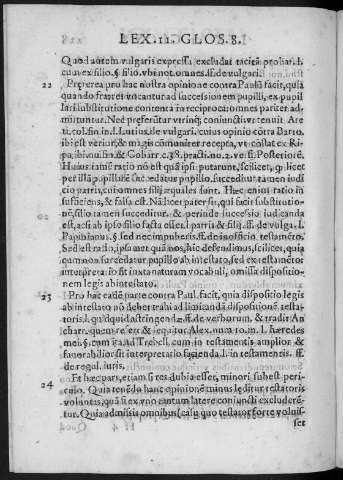 LEX. II. GLOS. 8.
Quod autem vulgaris expressa excludat tacitã probat. l.
cum ex filio. § filio. vbi not. omnes. ff. de vulgari.
22 Preterea pro hac nostra opinione contra Paulũ facit, quia
quando fratres inuitantur ad successionem pupilli, ex pupil
lari substitutione contenta in reciproca omnes pariter ad
mittuntur. Nec preferũtur vtrinq; coniuncti vt tenuit Are
ti. col. fin. in. l. Lutius. de vulgari. cuius opinio cõtra Barto.
ibi est verior, & magis cõmuniter recepta, vt cõstat ex Ri
pa, ibi nu. fin. & Gobarr. c. 38. practi. nu. 2. ver. Posteriore.
Huius tamẽ ratio nõ est quã ipsi putarunt, scilicet, q; licet
per illã pupillarẽ succedatur pupillo, succeditur tamen iudi
cio patris, cui omnes filij æquales sunt. Hæc enim ratio in
sufficiens, & falsa est. Nã licet pater sit, qui facit substitutio
nẽ, filio tamen succeditur, & perinde successio iudicanda
est, ac si ab ipso filio facta esset. l. patris & filij. ff. de vulga. l.
Papinianus. § sed nec impuberis. ff. de inofficio. testamẽto.
Sed est ratio, ipsa met quã nos, hic defendimus, scilicet, quia
cum non succedatur pupillo ab intestato, sed ex testamẽto
interpretatio fit iuxta naturam vocabuli, omissa dispositio-
nem legis ab intestato.
23 Pro hac eadẽ parte contra Paul. facit, quia dispositio legis
ab intestato nõ debet trahi ad limitandã dispositionẽ testa-
toris. l. quidquid astringendæ. ff. de verborum. & tradit An
charr. quem refert & sequitur Alex. num. 10. in. l. hæredes
mei. §. cum ita. ad Trebell. cum in testamentis amplior &
fauorabilior sit interpretatio facienda. l. in testamentis. ff.
de regul. iuris.
24 Et hæc pars, etiam si res dubia esset, minori subest peri-
culo. Quia tenẽdo hanc opinionẽ minus leditur testatoris
voluntas, quã si ex vno tantum latere coniuncti excluderẽ-
tur. Quia admissis omnibus (casu quo testator forte voluis-
set